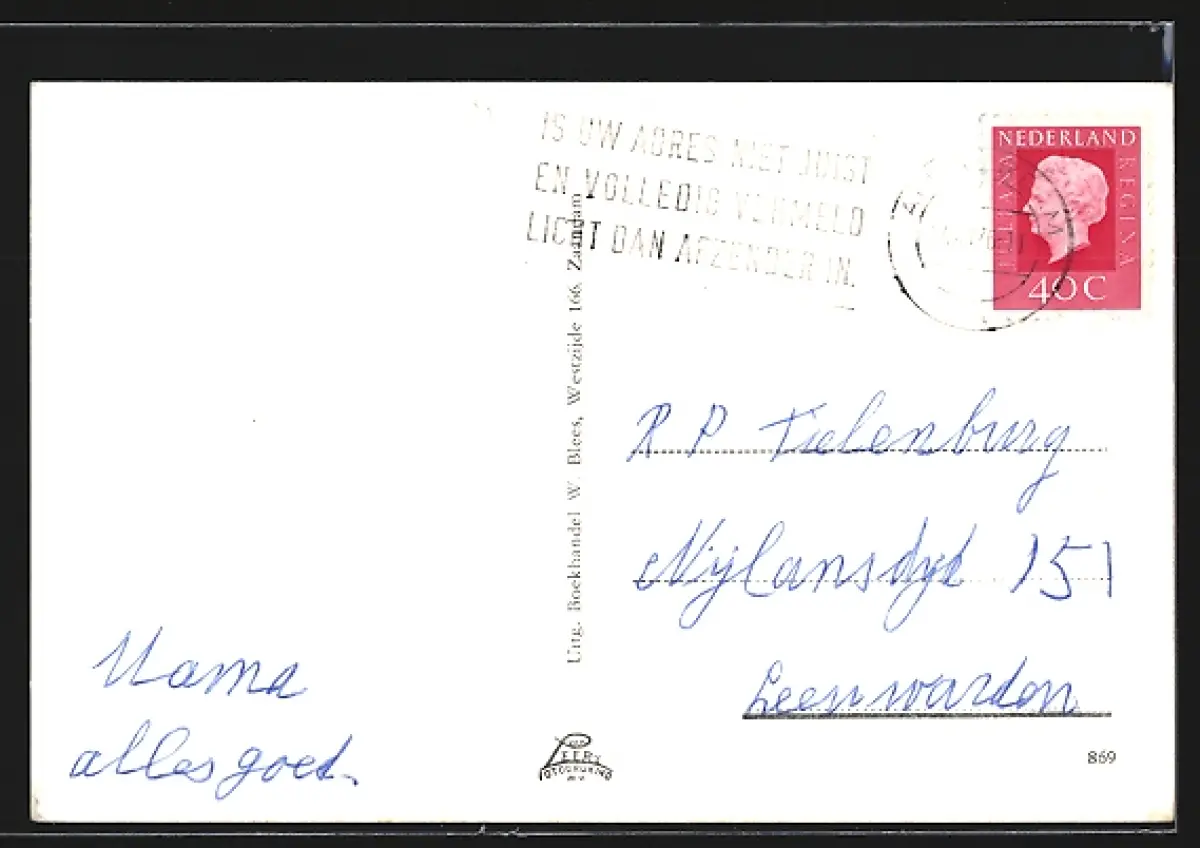 IS UW ADRES NIET JUIST
EN VOLLEDIG VERMELD
LICHT DAN AFZENDER IN.
NEDERLAND
JULIANA
REGINA
40 C
Uitg. Boekhandel W. Blees, Westzijde 166, Zaandam
R P Tielenburg
Nijlansdijk 151
Leeuwarden
Mama
alles goed.
869